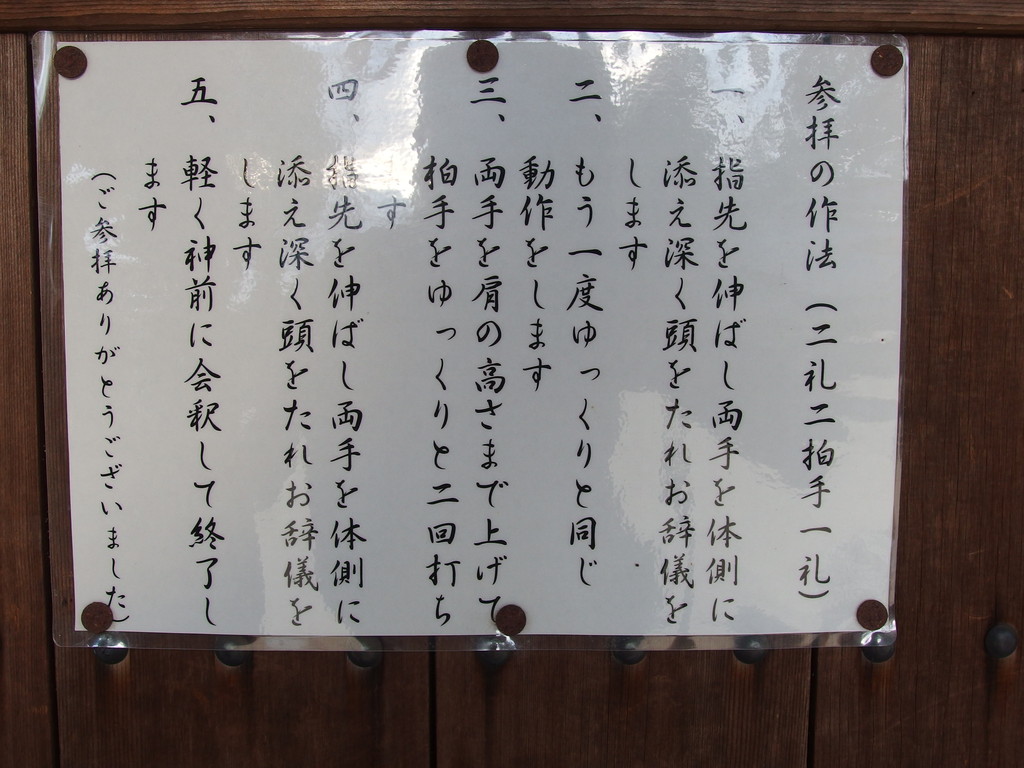 参拝の作法(二礼二拍手一礼)
一、指先を伸ばし両手を体側に
添え深く頭をたれお辞儀を
します
二、もう一度ゆっくりと同じ
動作をします
三、両手を肩の高さまで上げて
柏手をゆっくりと二回打ち
ます
四、指先を伸ばし両手を体側に
添え深く頭をたれお辞儀を
します
五、軽く神前に会釈して終了し
ます
(ご参拝ありがとうございました)